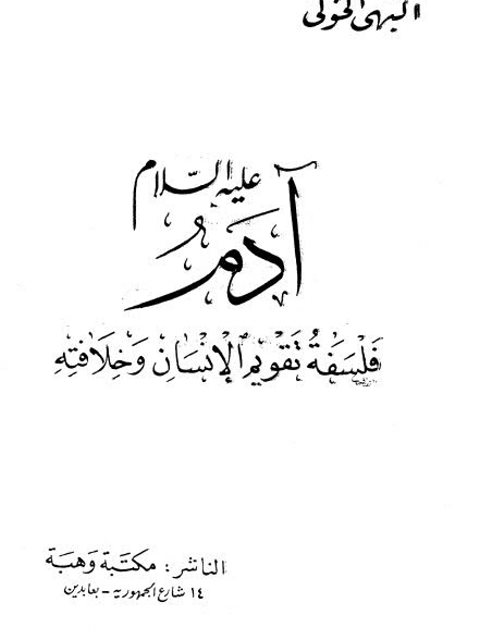 البهى الخولى
عليه السلام
آدَمُ
فَلْسَفَةُ تَقْويم الإِنْسَانِ وَخِلَافَتِهِ
الناشر : مكتبة وهبة
١٤ شارع الجمهورية - بعابدين